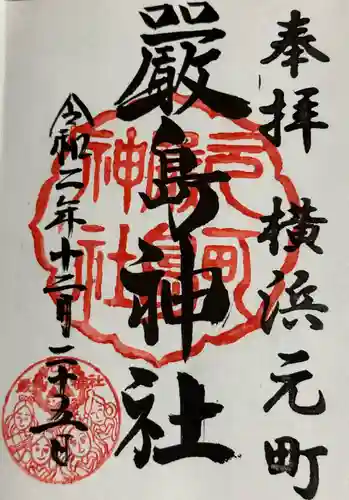 奉拝 横浜元町
嚴島神社
令和二年十二月二十五日
元町
嚴島
神社